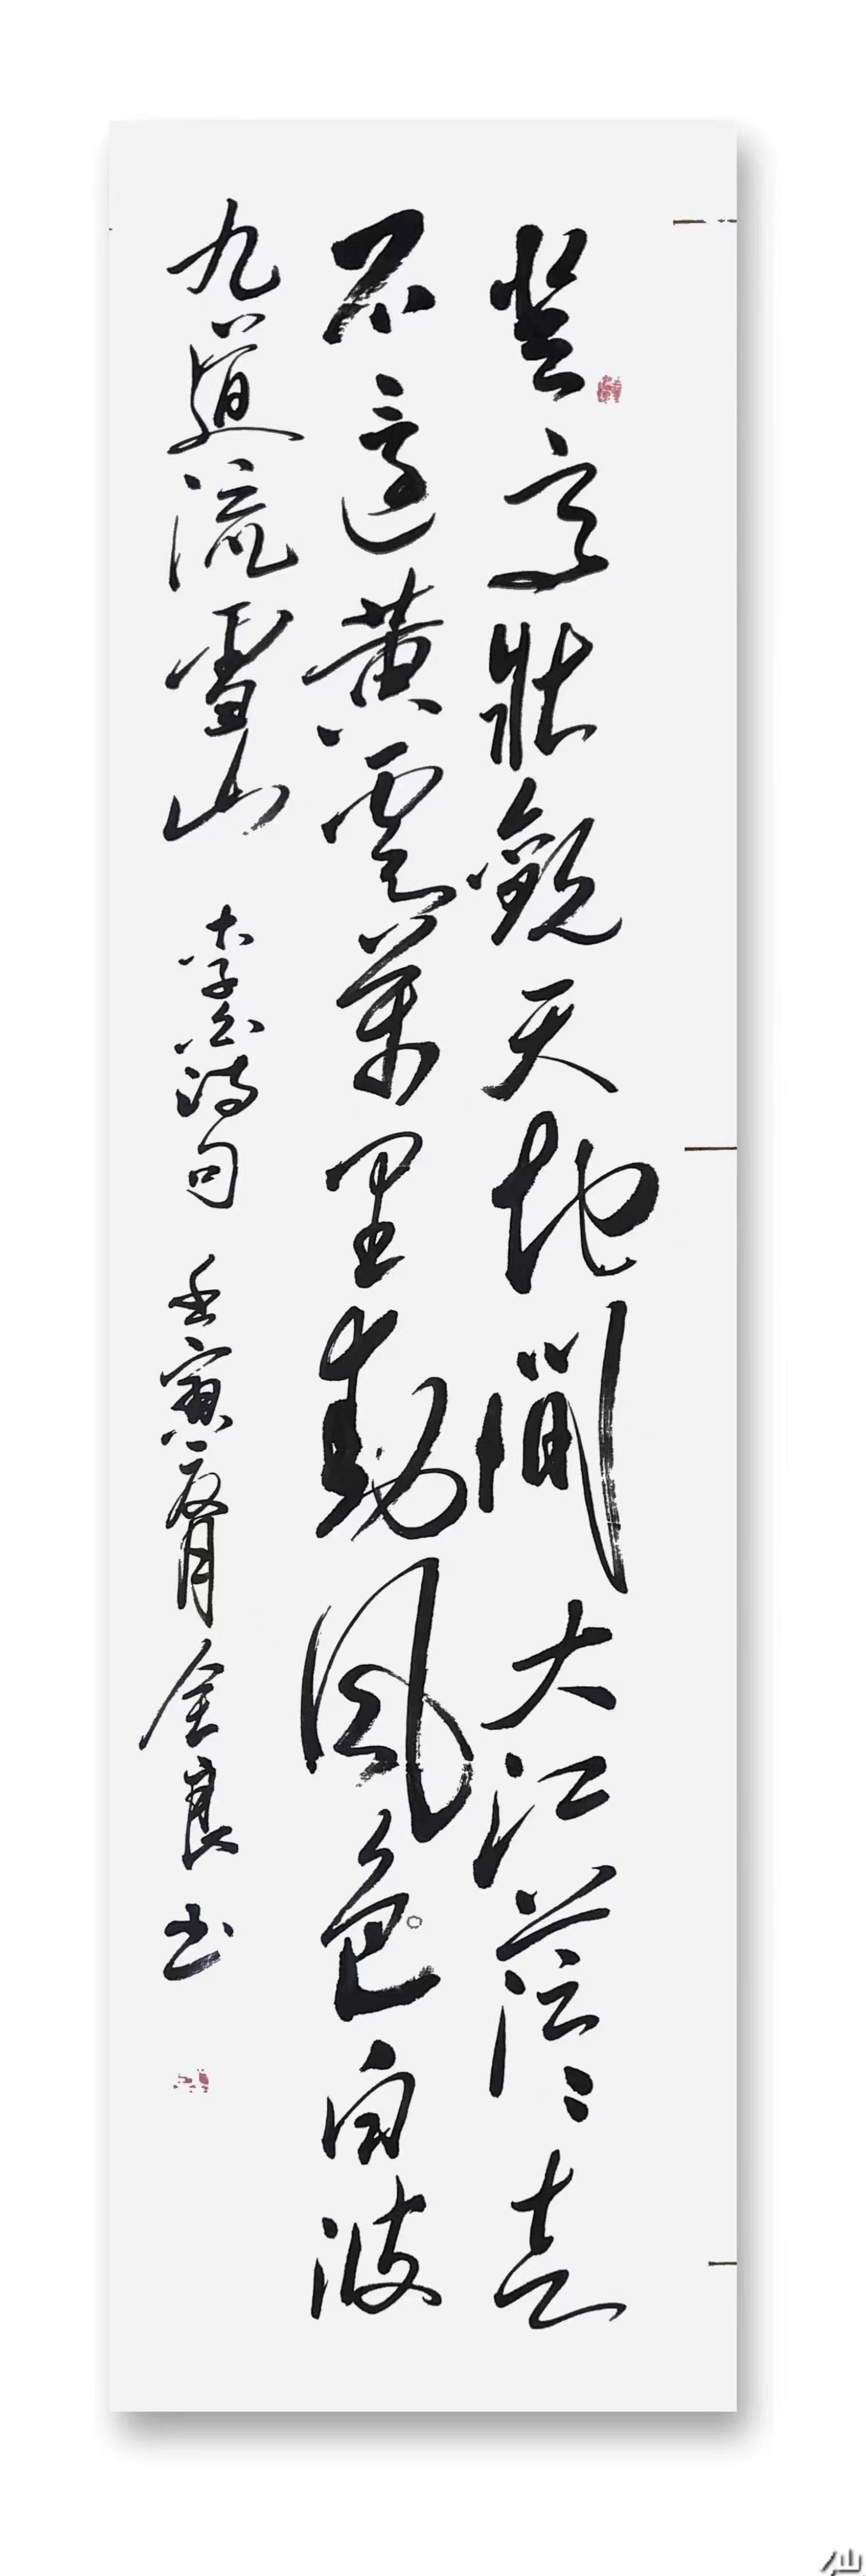 登高壯觀天地間大江茫〻去
不還黃雲萬里動風色白波
九道流雪山 李白詩句 壬寅六月 金良书
仙